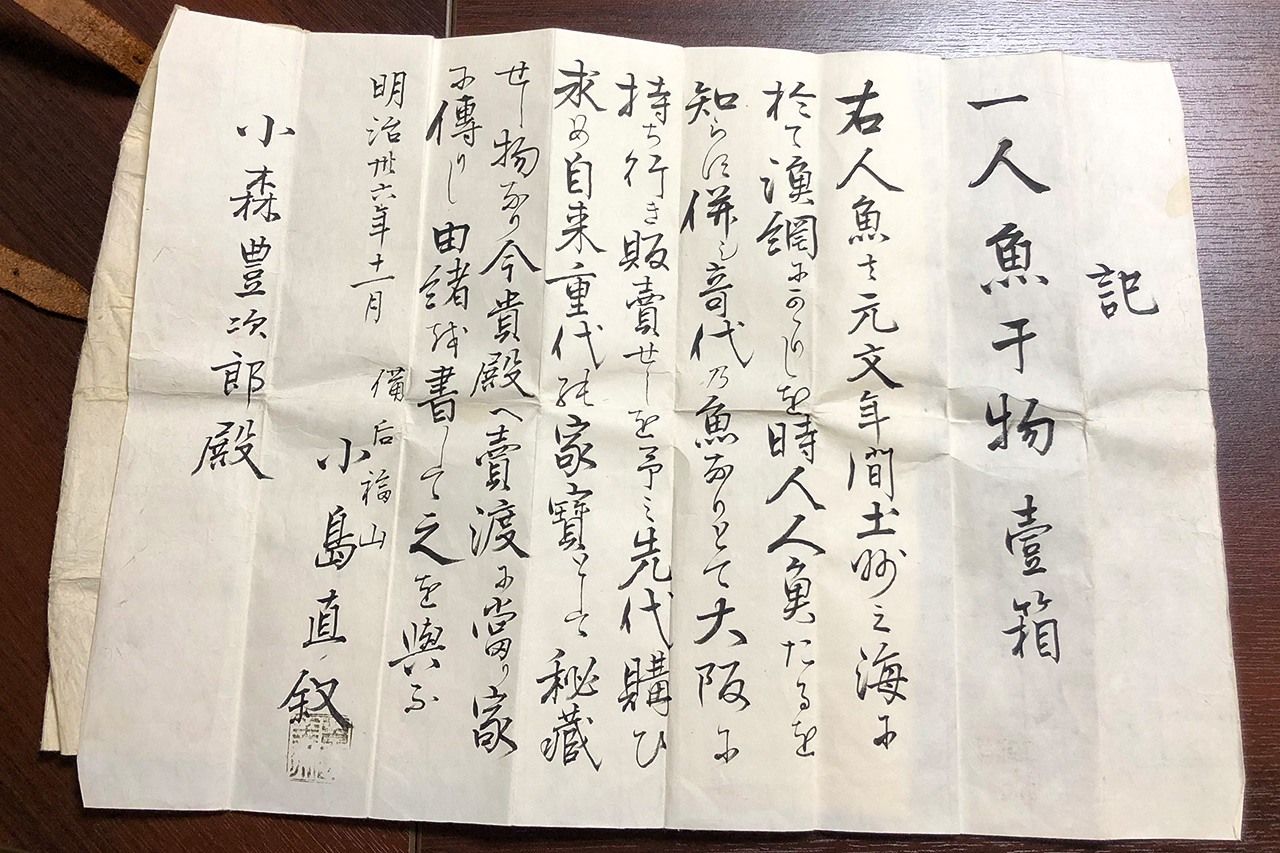 記
一人魚干物 壹箱
右人魚は元文年間土州之海に
於て漁網にかゝりしを時人人魚たるを
知らに併し奇代乃魚なりとて大阪に
持ち行き販賣せしを予之先代購ひ
求め自来重代の家寶として秘蔵
せし物なり今貴殿へ賣渡に當り家
に傳りし由緒を書して之を與ふ
明治卅六年十一月
備后福山
小島直叙
小森豊次郎殿